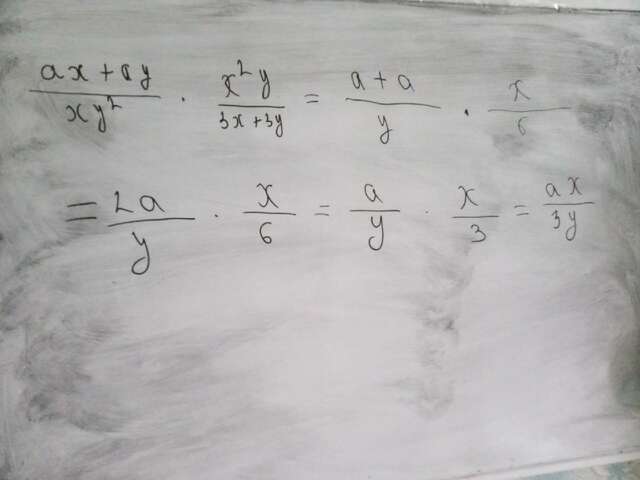 (ax + ay)/(xy²) · (x²y)/(3x + 3y) = (a + a)/y · x/6
= 2a/y · x/6 = a/y · x/3 = ax/3y